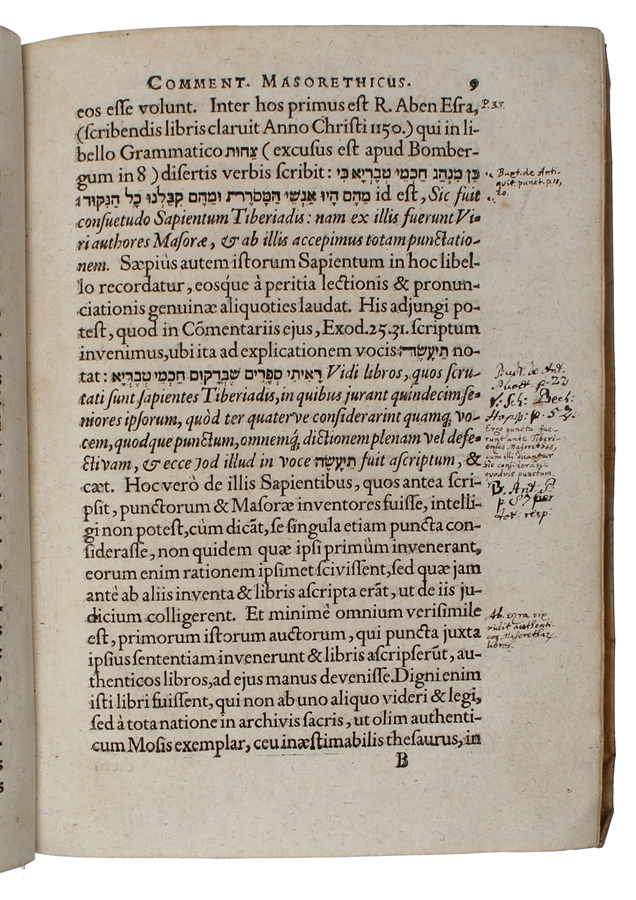 COMMENT. MASORETHICUS. 9
eos eſſe volunt. Inter hos primus eſt R. Aben Eſra,
(ſcribendis libris claruit Anno Chriſti 1150.) qui in li-
bello Grammatico צחות (excuſus eſt apud Bomber-
gum in 8) diſertis verbis ſcribit: כֵּן מִנְהַג חַכְמֵי טְבֶרְיָא כִּי
מֵהֶם הָיוּ אַנְשֵׁי הַמָּסֹרֶת וּמֵהֶם קִבַּלְנוּ כָל הַנִּקּוּד: id eſt, Sic fuit
conſuetudo Sapientum Tiberiadis: nam ex illis fuerunt Vi-
ri authores Maſoræ, & ab illis accepimus totam punctatio-
nem. Sæpiùs autem iſtorum Sapientum in hoc libel-
lo recordatur, eosque à peritia lectionis & pronun-
ciationis genuinæ aliquoties laudat. His adjungi po-
teſt, quod in Cõmentariis ejus, Exod. 25. 31. ſcriptum
invenimus, ubi ita ad explicationem vocis תֵּיעָשֶׂה no-
tat: רָאִיתִי סְפָרִים שֶׁבְּדָקוּם חַכְמֵי טְבֶרְיָא: Vidi libros, quos ſcru-
tati ſunt ſapientes Tiberiadis, in quibus jurant quindecim ſe-
niores ipſorum, quòd ter quaterve conſiderârint quamq; vo-
cem, quodque punctum, omnemq; dictionem plenam vel defe-
ctivam, & ecce Jod illud in voce תֵּיעָשֶׂה fuit aſcriptum, &
cæt. Hoc verò de illis Sapientibus, quos antea ſcri-
pſit, punctorum & Maſoræ inventores fuiſſe, intelli-
gi non poteſt, cùm dicãt, ſe ſingula etiam puncta con-
ſideraſſe, non quidem quæ ipſi primùm invenerant,
eorum enim rationem ipſimet ſciviſſent, ſed quæ jam
antè ab aliis inventa & libris aſcripta erãt, ut de iis ju-
dicium colligerent. Et minimè omnium veriſimile
eſt, primorum iſtorum auctorum, qui puncta juxta
ipſius ſententiam invenerunt & libris aſcripſerũt, au-
thenticos libros, ad ejus manus deveniſſe. Digni enim
iſti libri fuiſſent, qui non ab uno aliquo videri & legi,
ſed à tota natione in archivis ſacris, ut olim authenti-
cum Moſis exemplar, ceu inæſtimabilis theſaurus, in
B
P. 37.
Buxt. de Anti-
quit. punct. p. 11,
Buxt. de Ant.
Punct. p. 22
Ergo puncta fue-
runt ante Tiberi-
enses Masorethas,
cum illi dicantur
sic considerasse
quodvis punctum.
Ab. Esra vix
vidit authenti-
cos Masoretharum
libros.